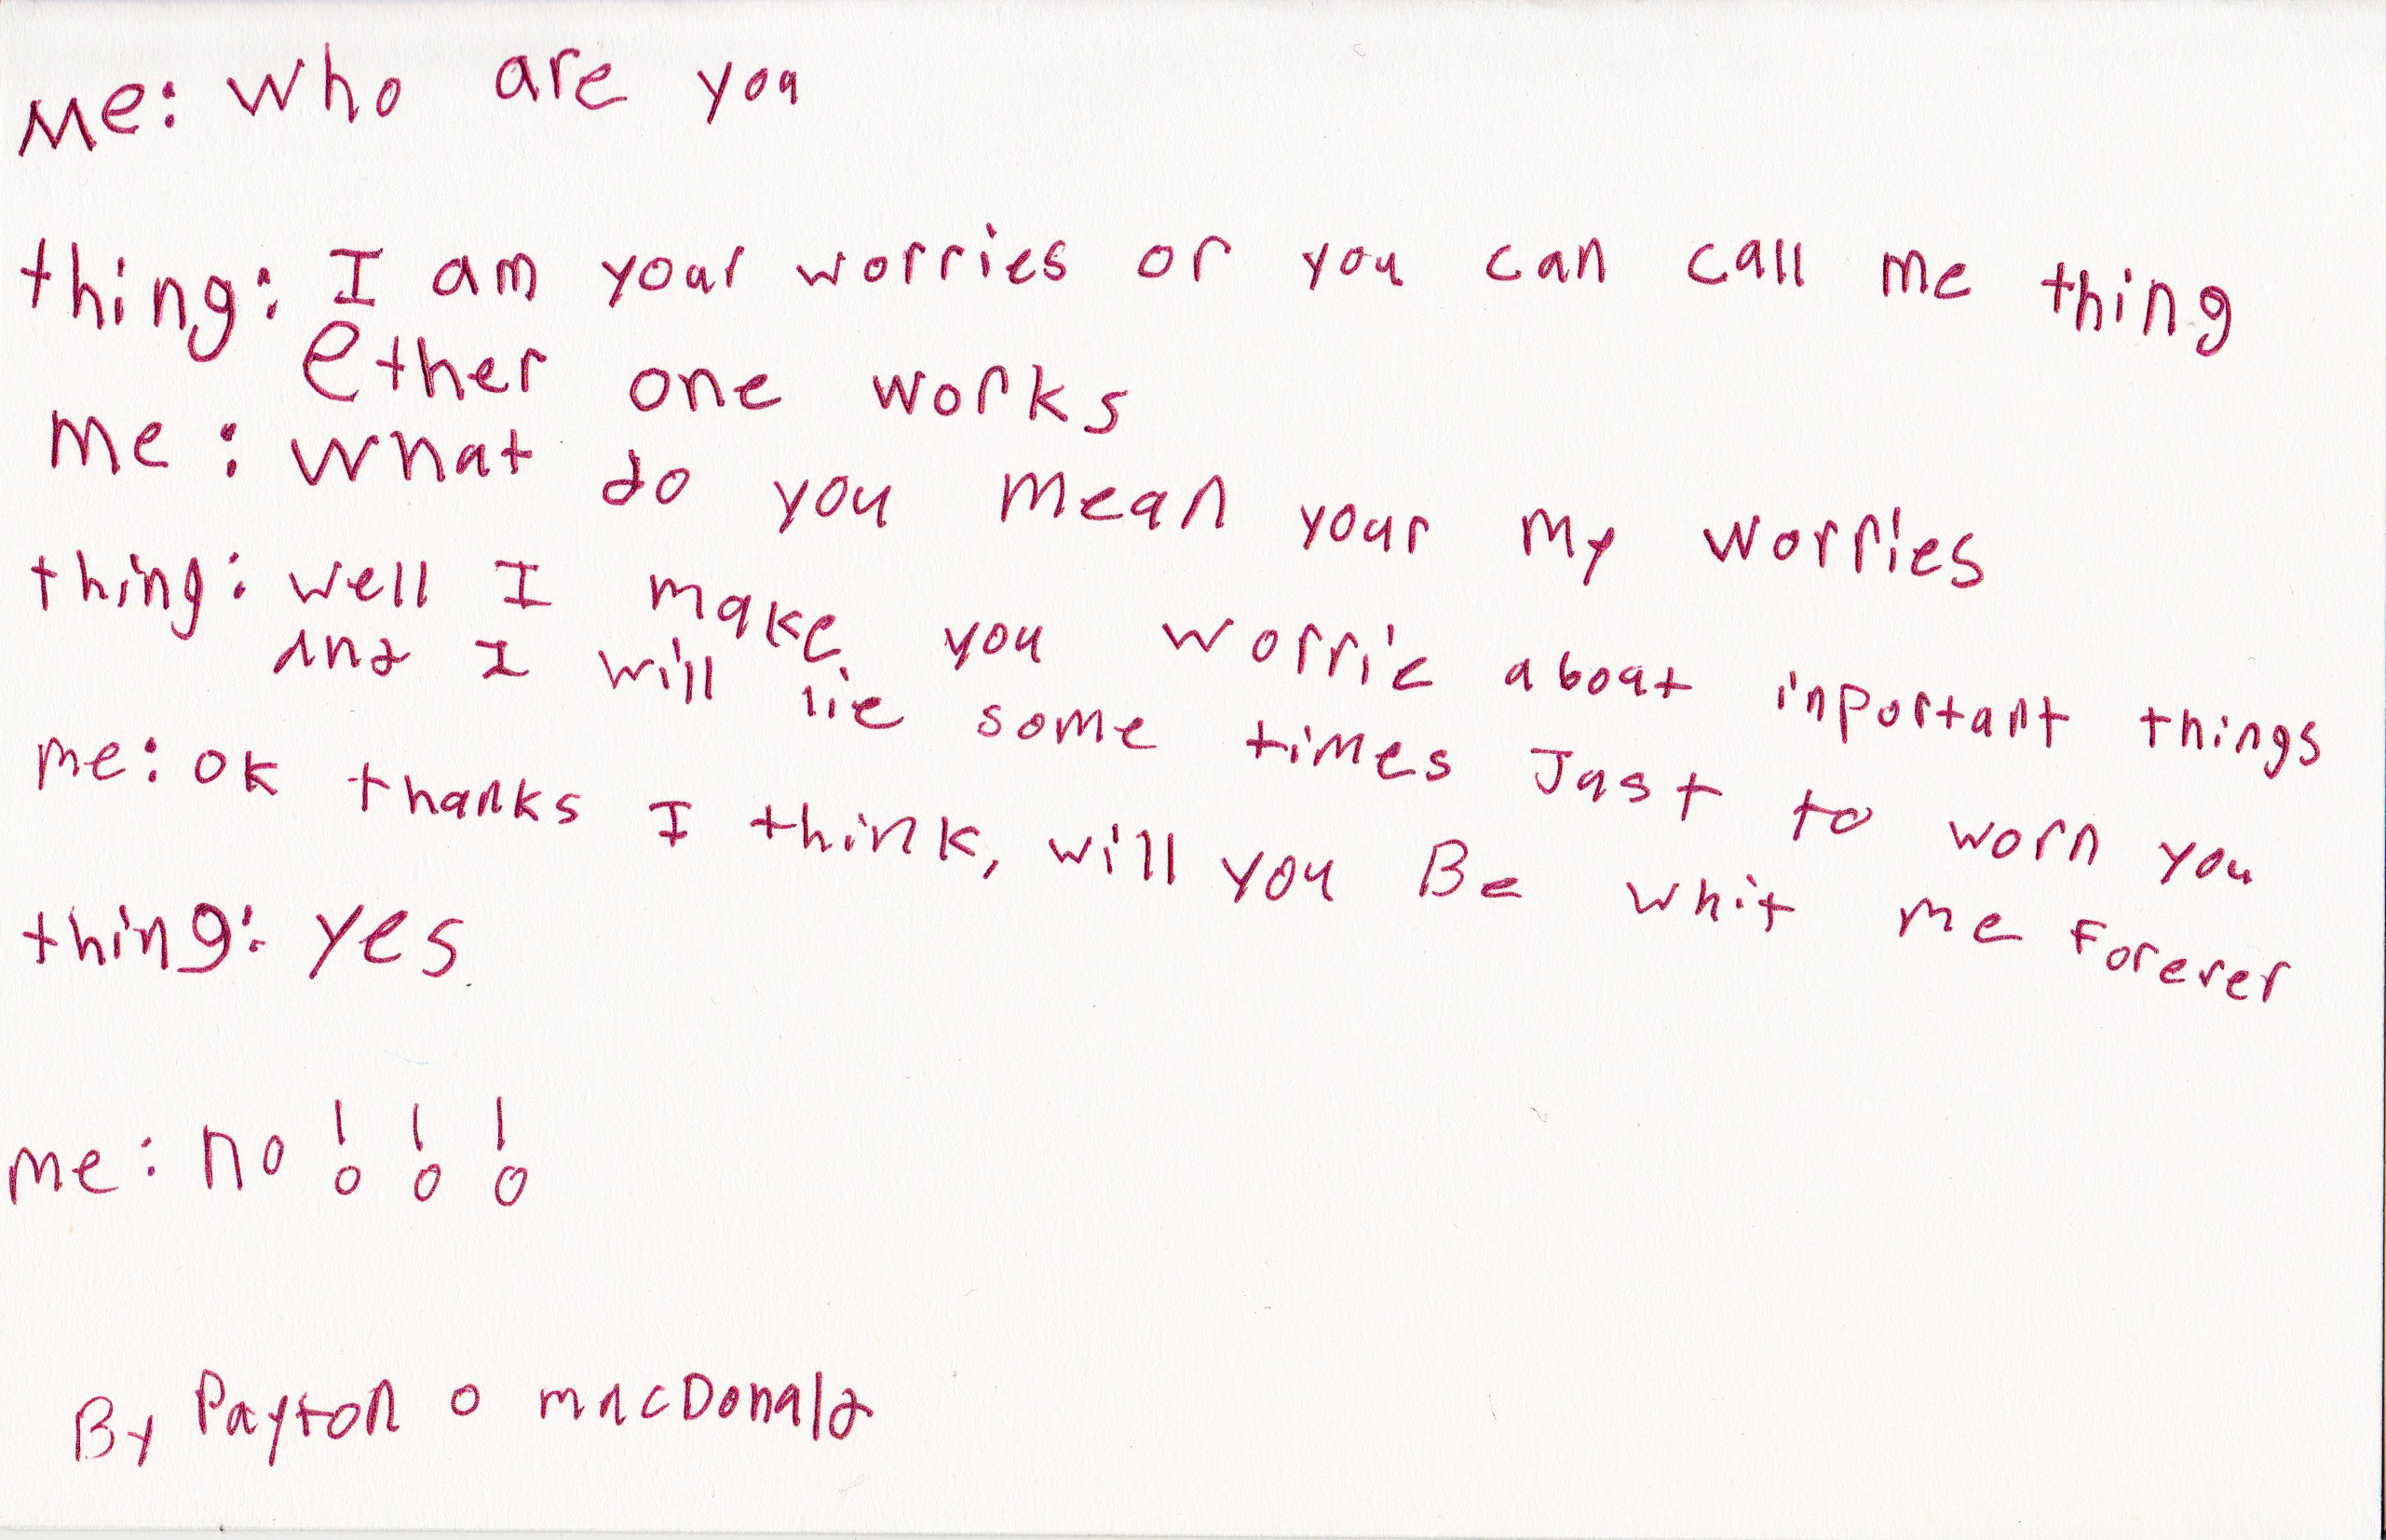 Me: who are you
thing: I am your worries or you can call me thing
ether one works
me: what do you mean your my worries
thing: well I make you worrie about inportant things
and I will lie some times Just to worn you
me: ok thanks I think, will you Be whit me forever
thing: yes
me: no!!!
By Payton o macDonald